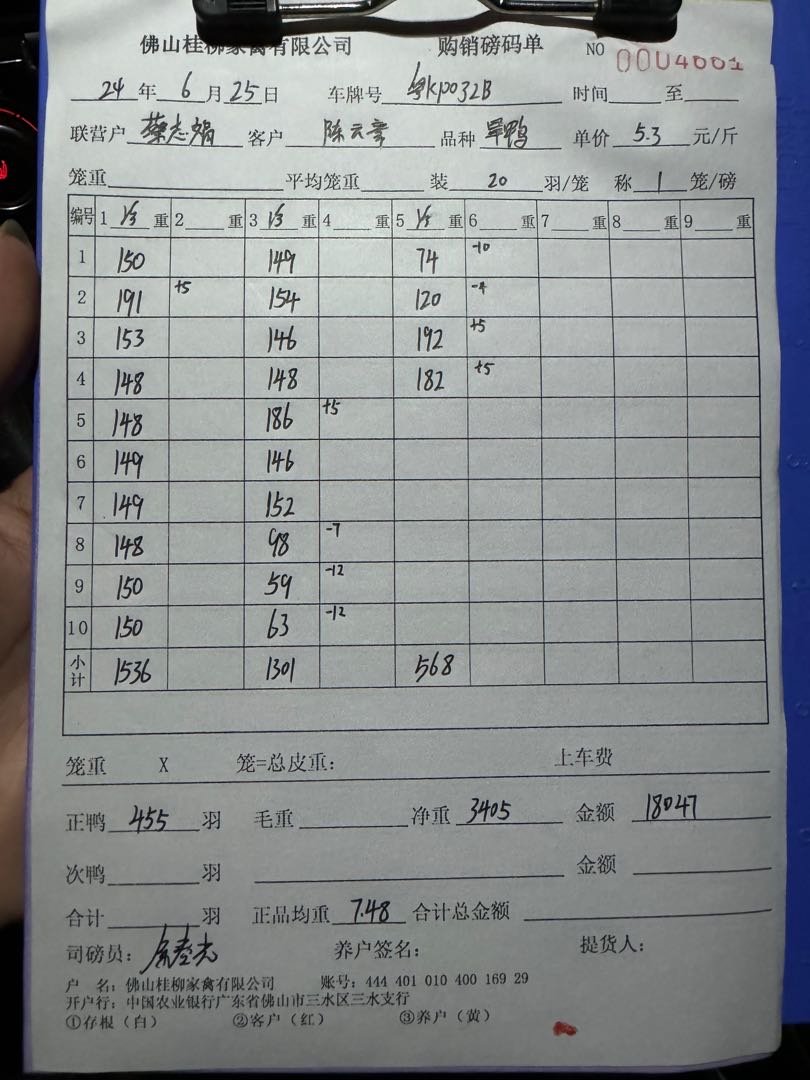 佛山桂柳家禽有限公司 购销磅码单 NO 0004001
24 年 6 月 25 日 车牌号 粤KP032B 时间 至
联营户 蔡志娟 客户 陈云章 品种 旱鸭 单价 5.3 元/斤
笼重 平均笼重 装 20 羽/笼 称 1 笼/磅
编号 1 1/3 重 2 重 3 1/3 重 4 重 5 1/3 重 6 重 7 重 8 重 9 重
1 150 149 74 -10
2 191 +5 154 120 -4
3 153 146 192 +5
4 148 148 182 +5
5 148 186 +5
6 149 146
7 149 152
8 148 98 -7
9 150 59 -12
10 150 63 -12
小计 1536 1301 568
笼重 X 笼=总皮重: 上车费
正鸭 455 羽 毛重 净重 3405 金额 18047
次鸭 羽 金额
合计 羽 正品均重 7.48 合计总金额
司磅员: 养户签名: 提货人:
户 名: 佛山桂柳家禽有限公司 账号: 444 401 010 400 169 29
开户行: 中国农业银行广东省佛山市三水区三水支行
①存根(白) ②客户(红) ③养户(黄)